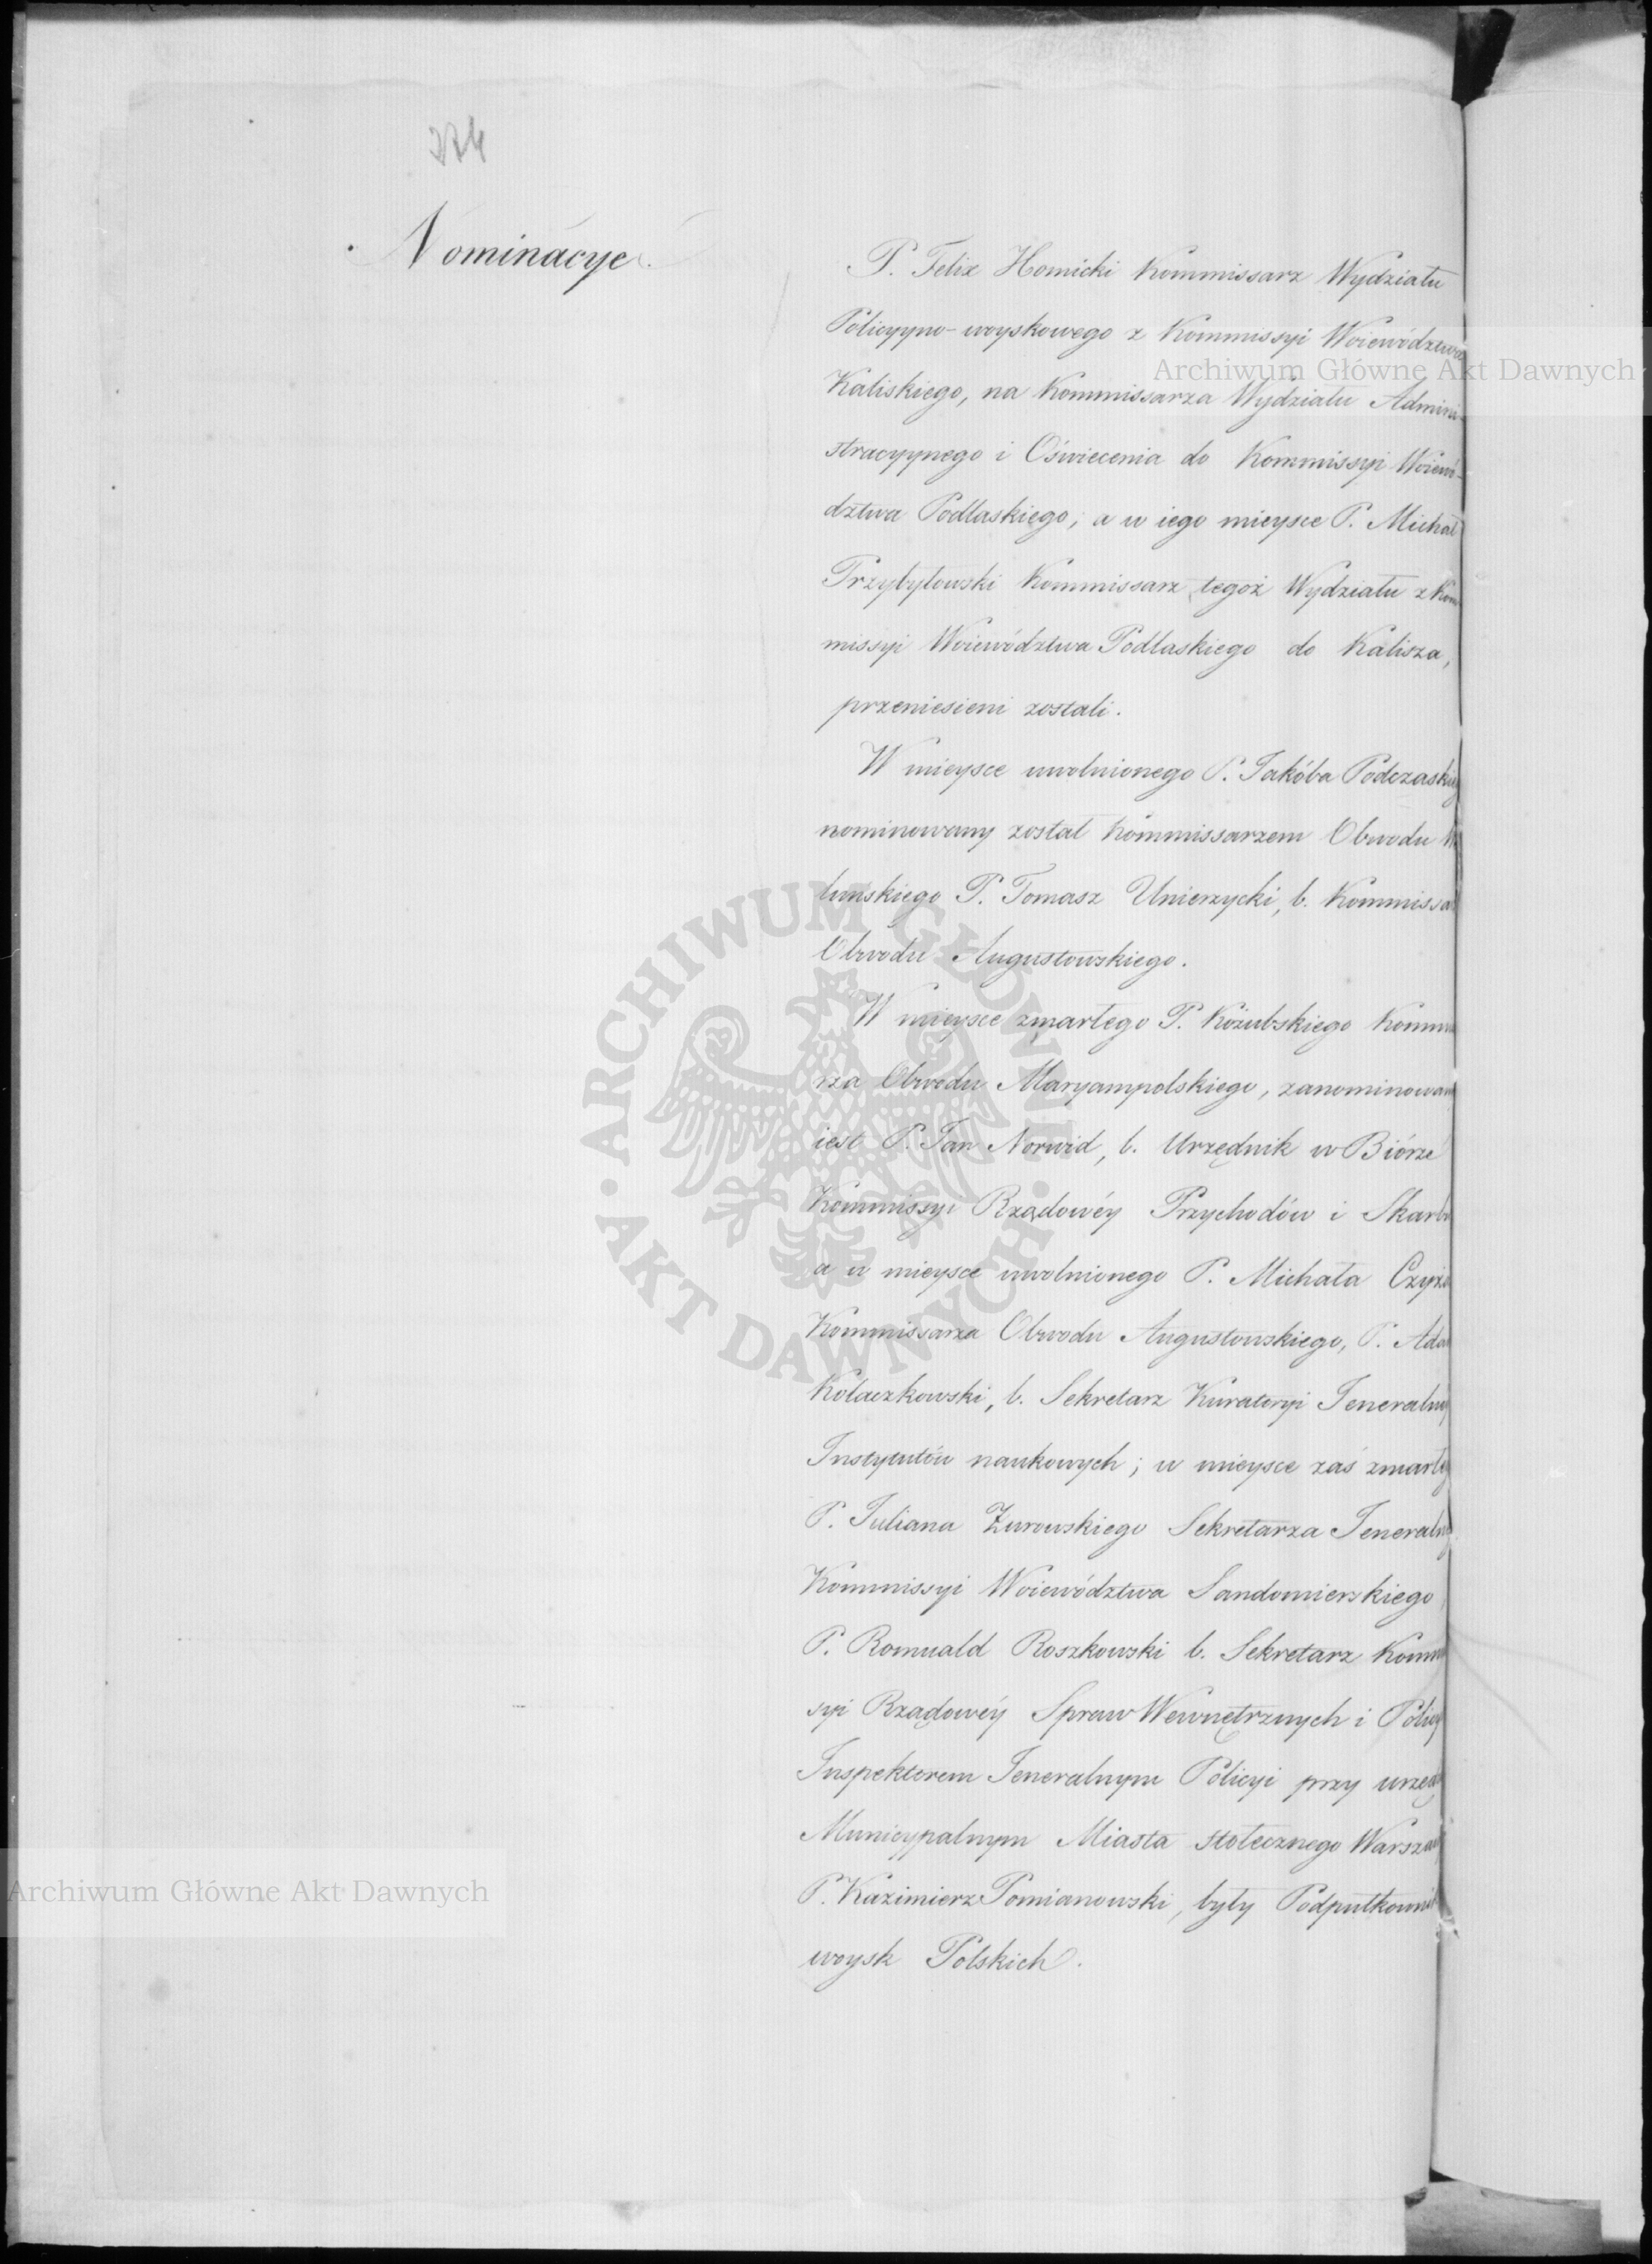 374
Nominacye.
P. Felix Homicki Kommissarz Wydziału
Policyyno-woyskowego z Kommissyi Woiewództwa
Kaliskiego, na Kommissarza Wydziału Admini-
stracyynego i Oświecenia do Kommissyi Woiewó-
dztwa Podlaskiego; a w iego mieysce P. Michał
Przybyłowski Kommissarz tegoż Wydziału z Kom
missyi Woiewództwa Podlaskiego do Kalisza,
przeniesieni zostali.
W mieysce uwolnionego P. Jakóba Podczaskieg
nominowany został Kommissarzem Obwodu
luńskiego P. Tomasz Unierzycki, b. Kommissar
Obwodu Augustowskiego.
W mieysce zmarłego P. Kożubskiego Kommi
rza Obwodu Maryampolskiego, zanominowan
iest P. Jan Norwid, b. Urzędnik w Biórze
Kommissyi Rządowéy Przychodów i Skarbu
a w mieysce uwolnionego P. Michała Czyże
Kommissarza Obwodu Augustowskiego, P. Ada
Kołaczkowski, b. Sekretarz Kuratoryi Jeneralnéy
Instytutów naukowych; w mieysce zaś zmarłeg
P. Juliana Żurowskiego Sekretarza Jeneralne
Kommissyi Woiewództwa Sandomierskiego
P. Romuald Roszkowski b. Sekretarz Kommi
syi Rządowéy Spraw Wewnętrznych i Policy
Inspektorem Jeneralnym Policyi przy urzęd
Municypalnym Miasta stołecznego Warsza
P. Kazimierz Pomianowski, były Podpułkownik
woysk Polskich.
Archiwum Główne Akt Dawnych
ARCHIWUM GŁÓWNE · AKT DAWNYCH ·
Archiwum Główne Akt Dawnych